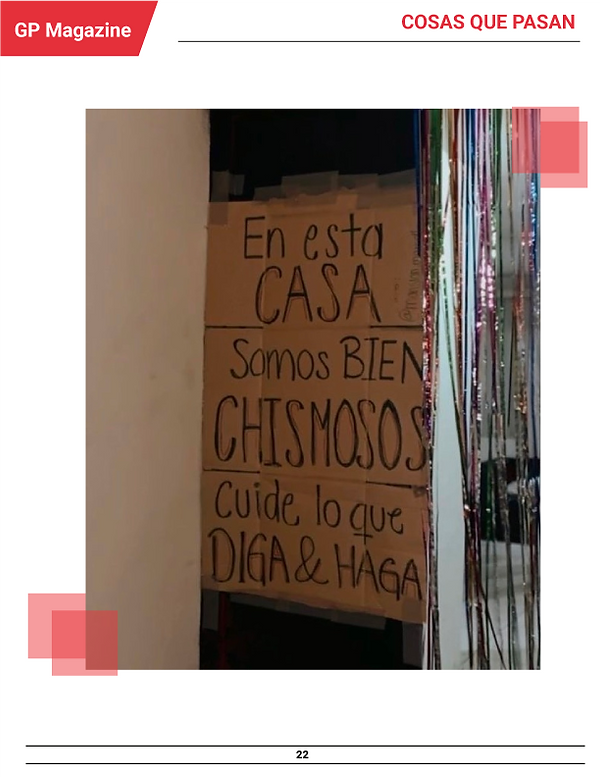 GP Magazine
COSAS QUE PASAN
En esta
CASA
Somos BIEN
CHISMOSOS
Cuide lo que
DIGA & HAGA
22